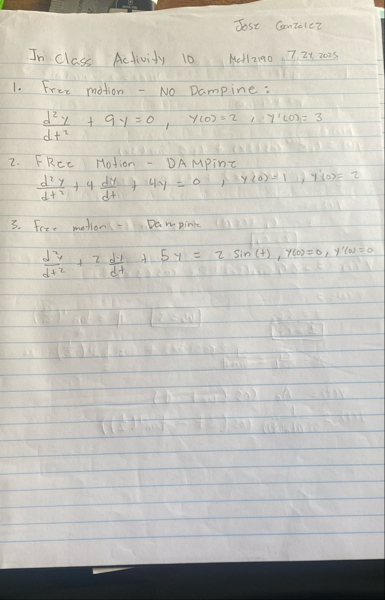 Jose Gonzalez
In Class Activity 10 Mat1290 7.24.2025
1. Free motion - No Dampine:
d²y/dt² + 9y = 0, y(0) = 2, y'(0) = 3
2. FRee Motion - DAMPine
d²y/dt² + 4 dy/dt + 4y = 0, y(0) = 1, y'(0) = 2
3. Free motion - Dampine
d²y/dt² + 2 dy/dt + 5y = 2 sin(t), y(0)=0, y'(0)=0